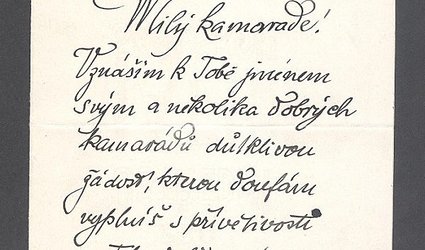 Milý kamaráde!
Vznáším k Tobě jménem
svým a několika dobrých
kamarádů důtklivou
žádost, kterou doufám
vyplníš s přívětivostí